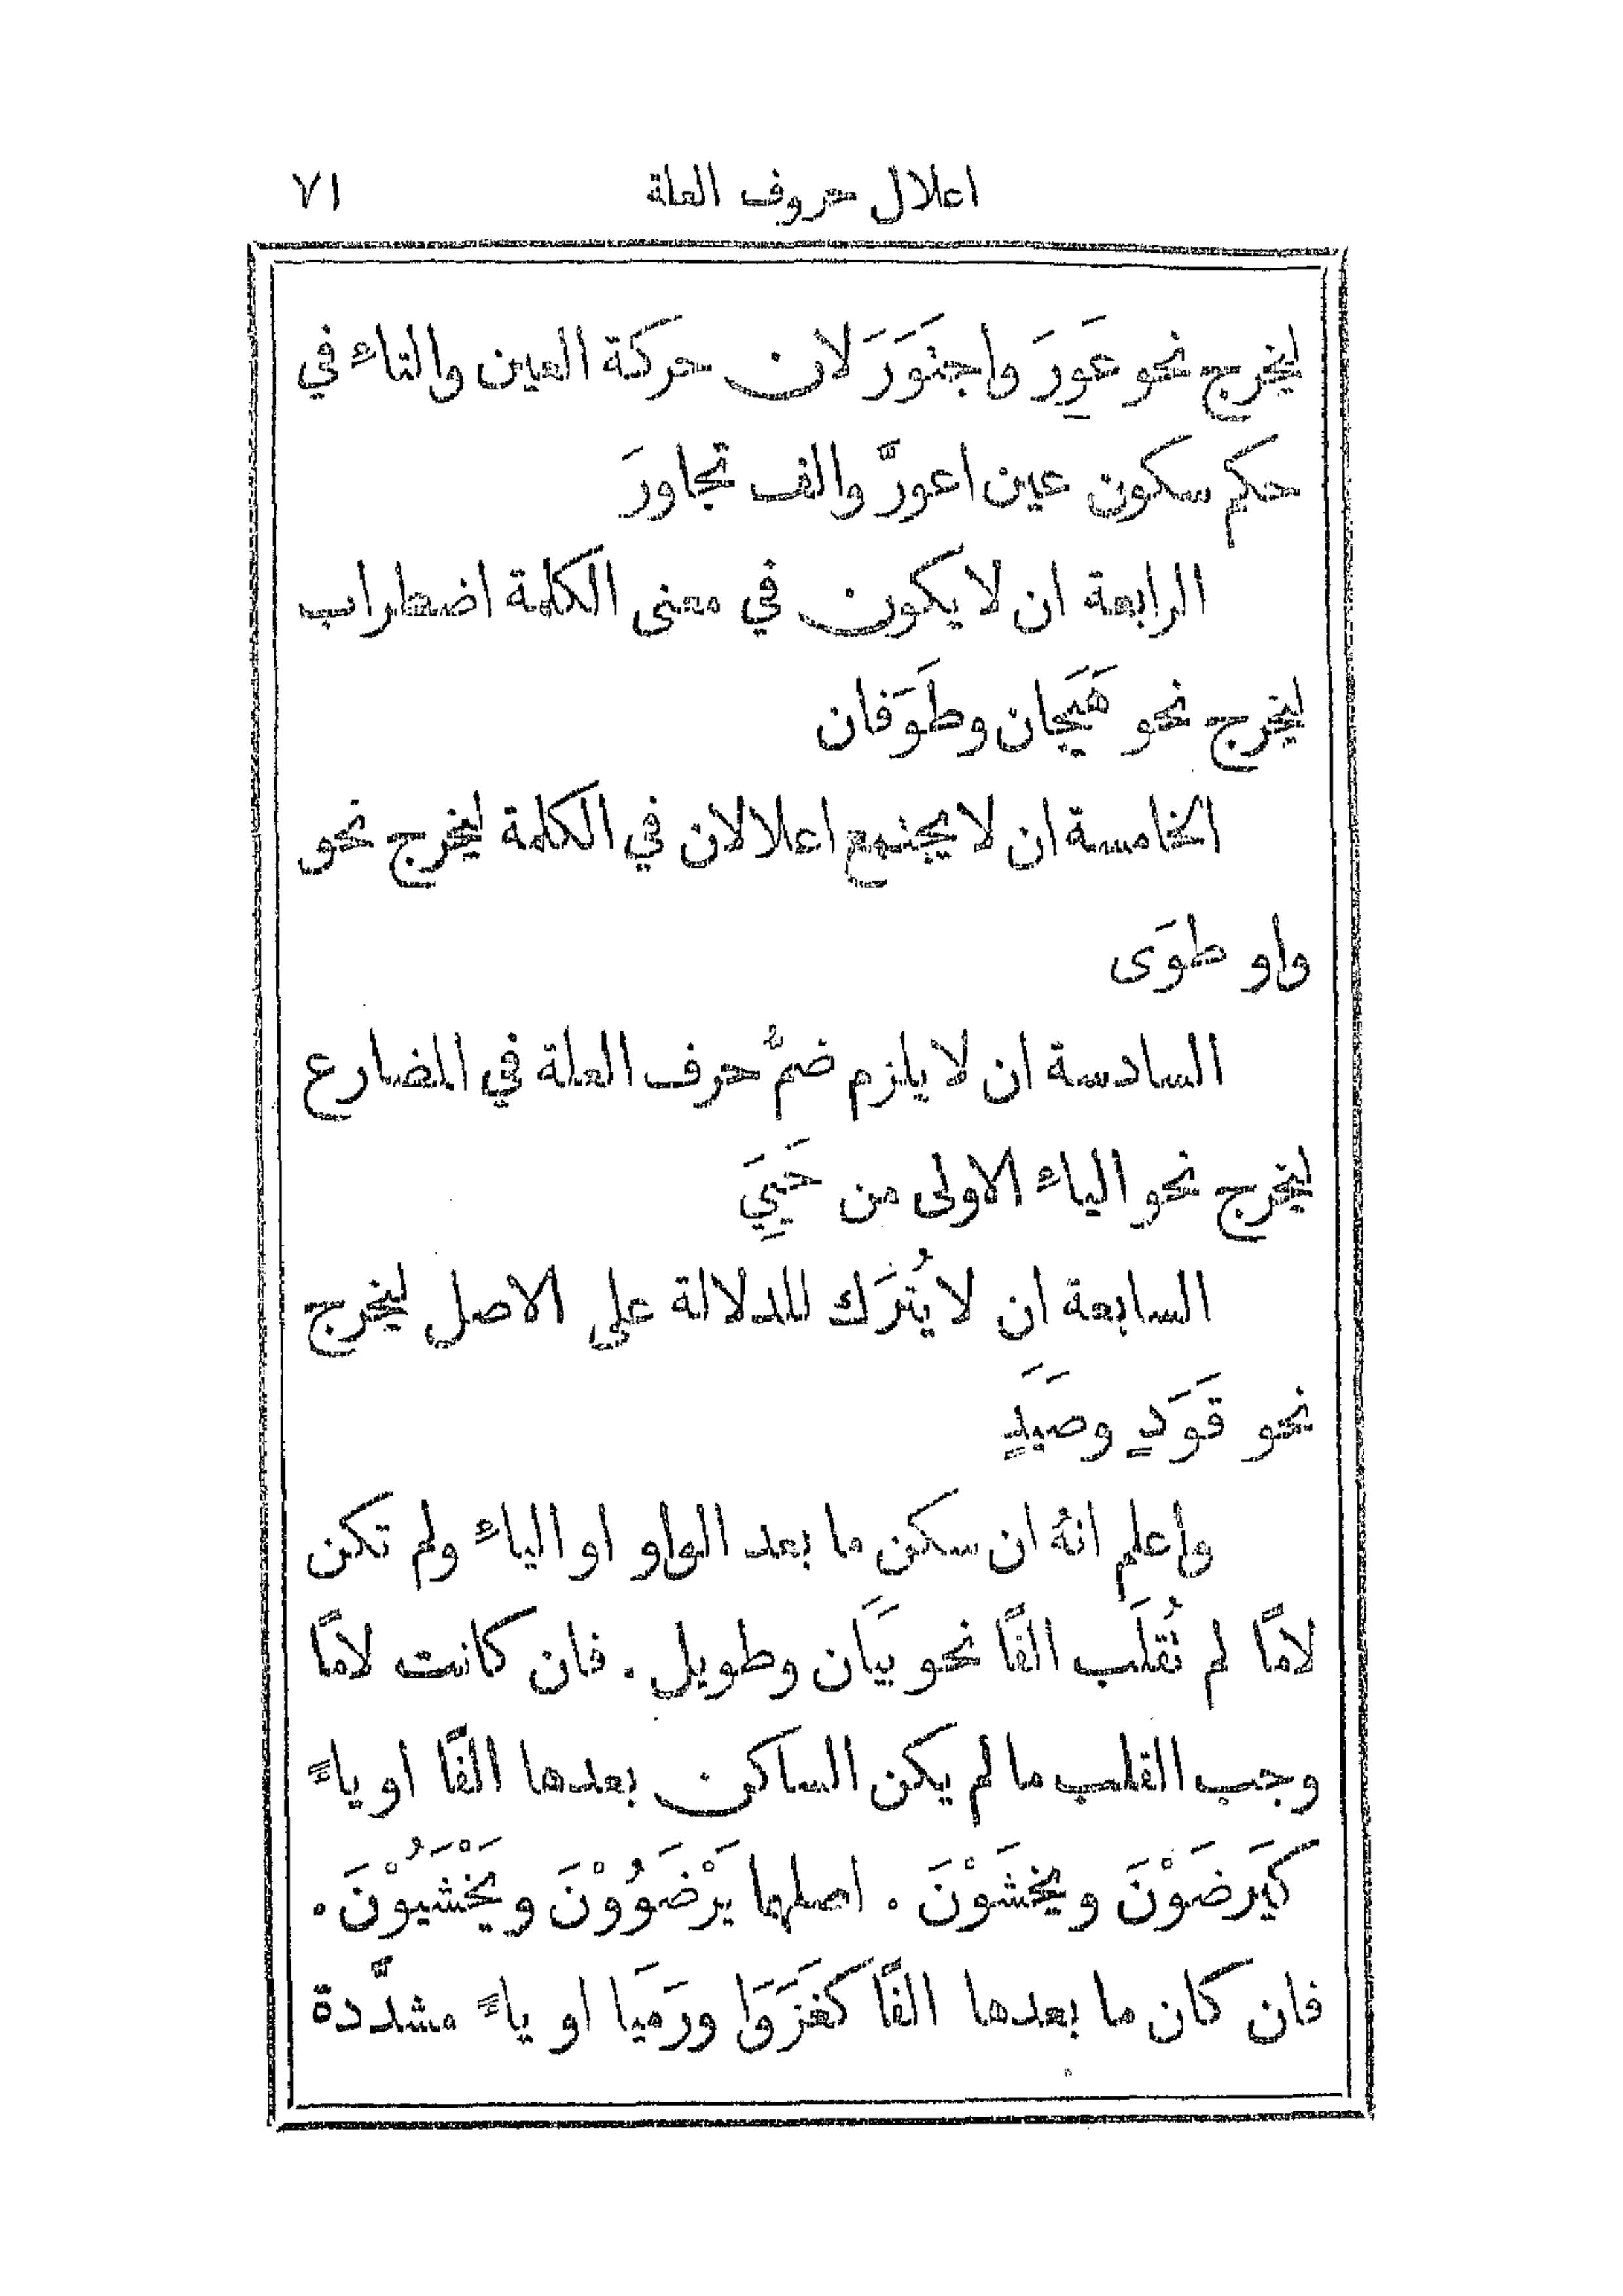 اعلال حروف العلة ٧١
ليخرج نحو عَوِرَ واجتَوَرَ لان حركة العين والتاء في
حكم سكون عين اعورَّ والف تجاورَ
الرابعة ان لا يكون في معنى الكلمة اضطراب
ليخرج نحو هَيَجان وطَوَفان
الخامسة ان لا يجتمع اعلالان في الكلمة ليخرج نحو
واو طوَى
السادسة ان لا يلزم ضمُّ حرف العلة في المضارع
ليخرج نحو الياء الاولى من حَيِيَ
السابعة ان لا يُترَك للدلالة على الاصل ليخرج
نحو قَوَدٍ وصَيَدٍ
واعلم انهُ ان سكن ما بعد الواو او الياء ولم تكن
لامًا لم تُقلَب الفًا نحو بَيَان وطويل . فان كانت لامًا
وجب القلب ما لم يكن الساكن بعدها الفًا او ياءً
كَيَرضَوْنَ ويخشَوْنَ . اصلهما يَرْضَوُوْنَ ويَخْشَيُوْنَ .
فان كان ما بعدها الفًا كغَزَوَا ورَمَيا او ياءً مشدَّدة